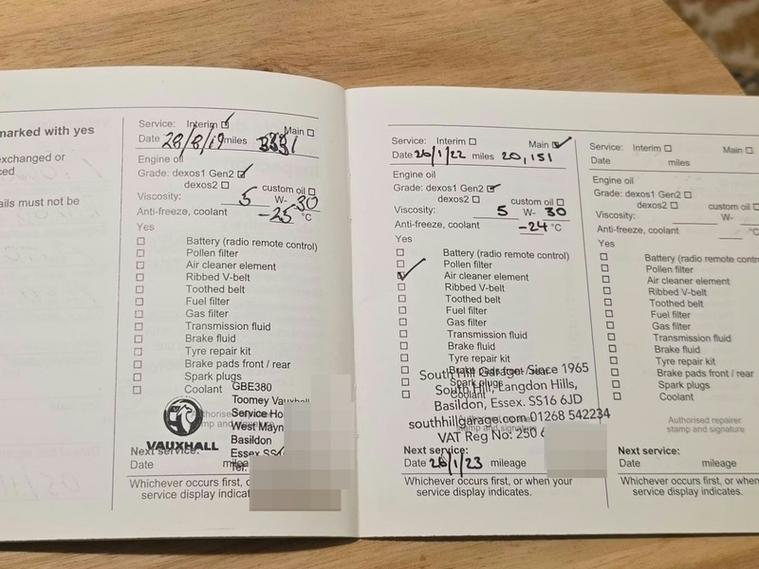 marked with yes
exchanged or
ced
ails must not be
Service: Interim Main
Date 28/8/19 miles
Engine oil
Grade: dexos1 Gen2
dexos2 custom oil
Viscosity: 5 W- 30
Anti-freeze, coolant -25 °C
Yes
Battery (radio remote control)
Pollen filter
Air cleaner element
Ribbed V-belt
Toothed belt
Fuel filter
Gas filter
Transmission fluid
Brake fluid
Tyre repair kit
Brake pads front / rear
Spark plugs
Coolant
GBE380
Toomey Vauxhall
Service Ho
West Mayn
Basildon
Essex SS
Tel:
VAUXHALL
Next service:
Date
Whichever occurs first, o
service display indicat
Service: Interim Main
Date 26/1/22 miles 20,151
Engine oil
Grade: dexos1 Gen2
dexos2 custom oil
Viscosity: 5 W- 30
Anti-freeze, coolant -24 °C
Yes
Battery (radio remote control)
Pollen filter
Air cleaner element
Ribbed V-belt
Toothed belt
Fuel filter
Gas filter
Transmission fluid
Brake fluid
Tyre repair kit
Brake pads front / rear
Spark plugs
Coolant
South Hill Garage Since 1965
South Hill, Langdon Hills,
Basildon, Essex. SS16 6JD
southhillgarage.com 01268 542234
stamp and signature
VAT Reg No: 250 6
Next service:
Date 26/1/23 mileage
Whichever occurs first, or when your
service display indicates.
Service: Interim Main
Date miles
Engine oil
Grade: dexos1 Gen2
dexos2 custom oil
Viscosity: W-
Anti-freeze, coolant °C
Yes
Battery (radio remote contr
Pollen filter
Air cleaner element
Ribbed V-belt
Toothed belt
Fuel filter
Gas filter
Transmission fluid
Brake fluid
Tyre repair kit
Brake pads front / rear
Spark plugs
Coolant
Authorised repairer
stamp and signature
Next service:
Date mileage
Whichever occurs first, or when
service display indicates.